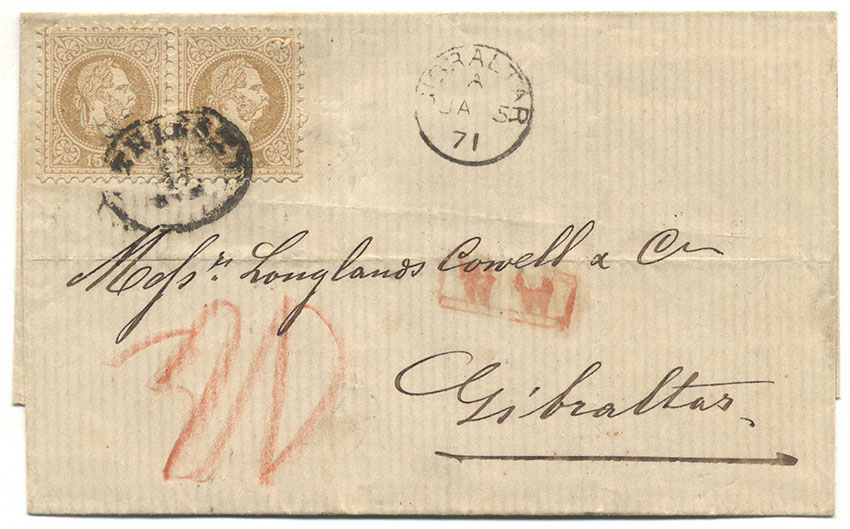 GIBRALTAR
A
JA 5
71
15
TRIEST
Messrs. Longlands Cowell & Co
Gibraltar